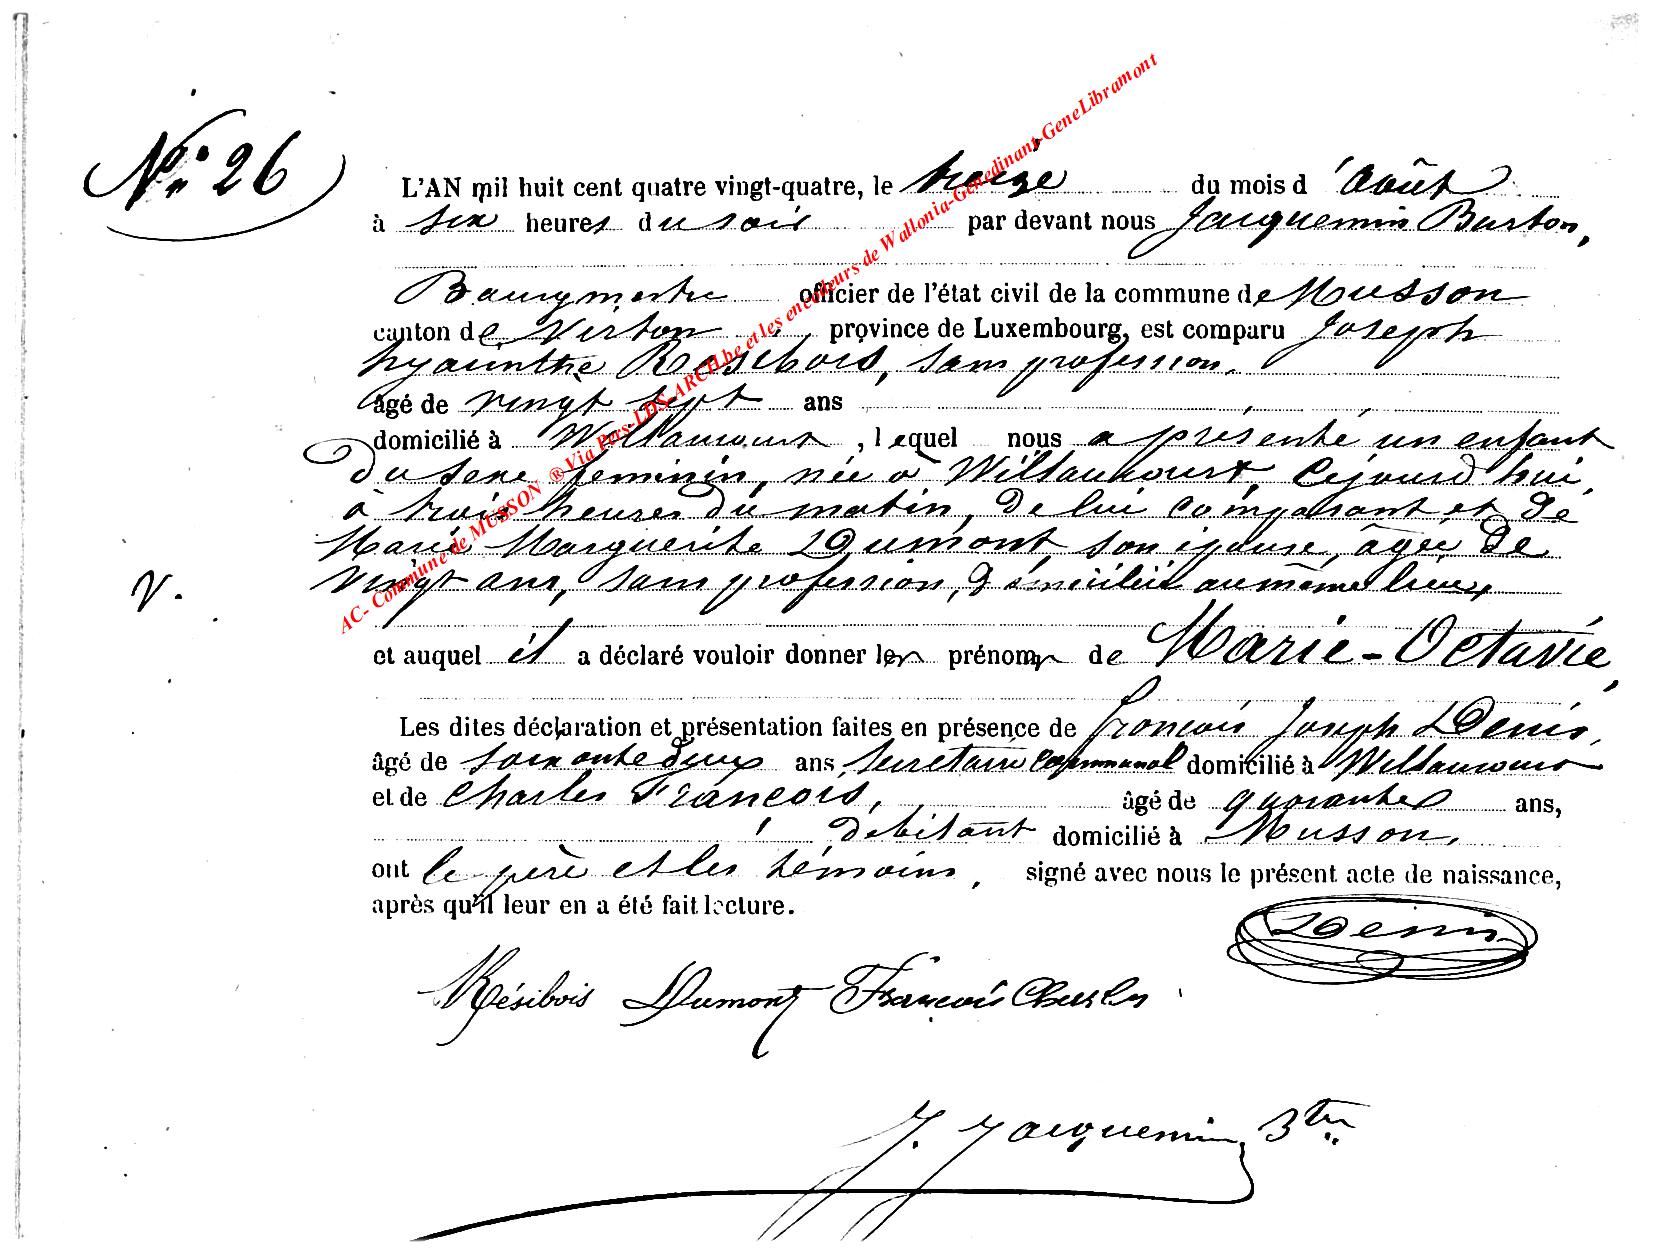 N.º 26
L'AN mil huit cent quatre vingt-quatre, le treize du mois d'Août
à six heures du soir par devant nous Jacquemin Burton,
Bourgmestre officier de l'état civil de la commune de Musson
canton de Virton, province de Luxembourg, est comparu Joseph
hyacinthe Résibois, sans profession.
âgé de vingt sept ans
domicilié à Willancourt, lequel nous a présenté un enfant
du sexe féminin, née à Willancourt, Cejourd'hui,
à trois heures du matin, de lui comparant et de
Marie Marguerite Dumont, son épouse, âgée de
V.
vingt ans, sans profession, domiciliée au même lieu,
et auquel il a déclaré vouloir donner les prénoms de Marie-Octavie,
Les dites déclaration et présentation faites en présence de françois Joseph Denis,
âgé de soixante deux ans, secrétaire communal domicilié à Willancourt
et de Charles François, âgé de quarante ans,
débitant domicilié à Musson,
ont le père et les témoins, signé avec nous le présent acte de naissance,
après qu'il leur en a été fait lecture.
Denis
Résibois Dumont François Charles
J. Jacquemin Btn
AC- Commune de MUSSON ® Via Pers-LDS-ARCH.be et les encodeurs de Wallonia-Genedinant-GeneLibramont